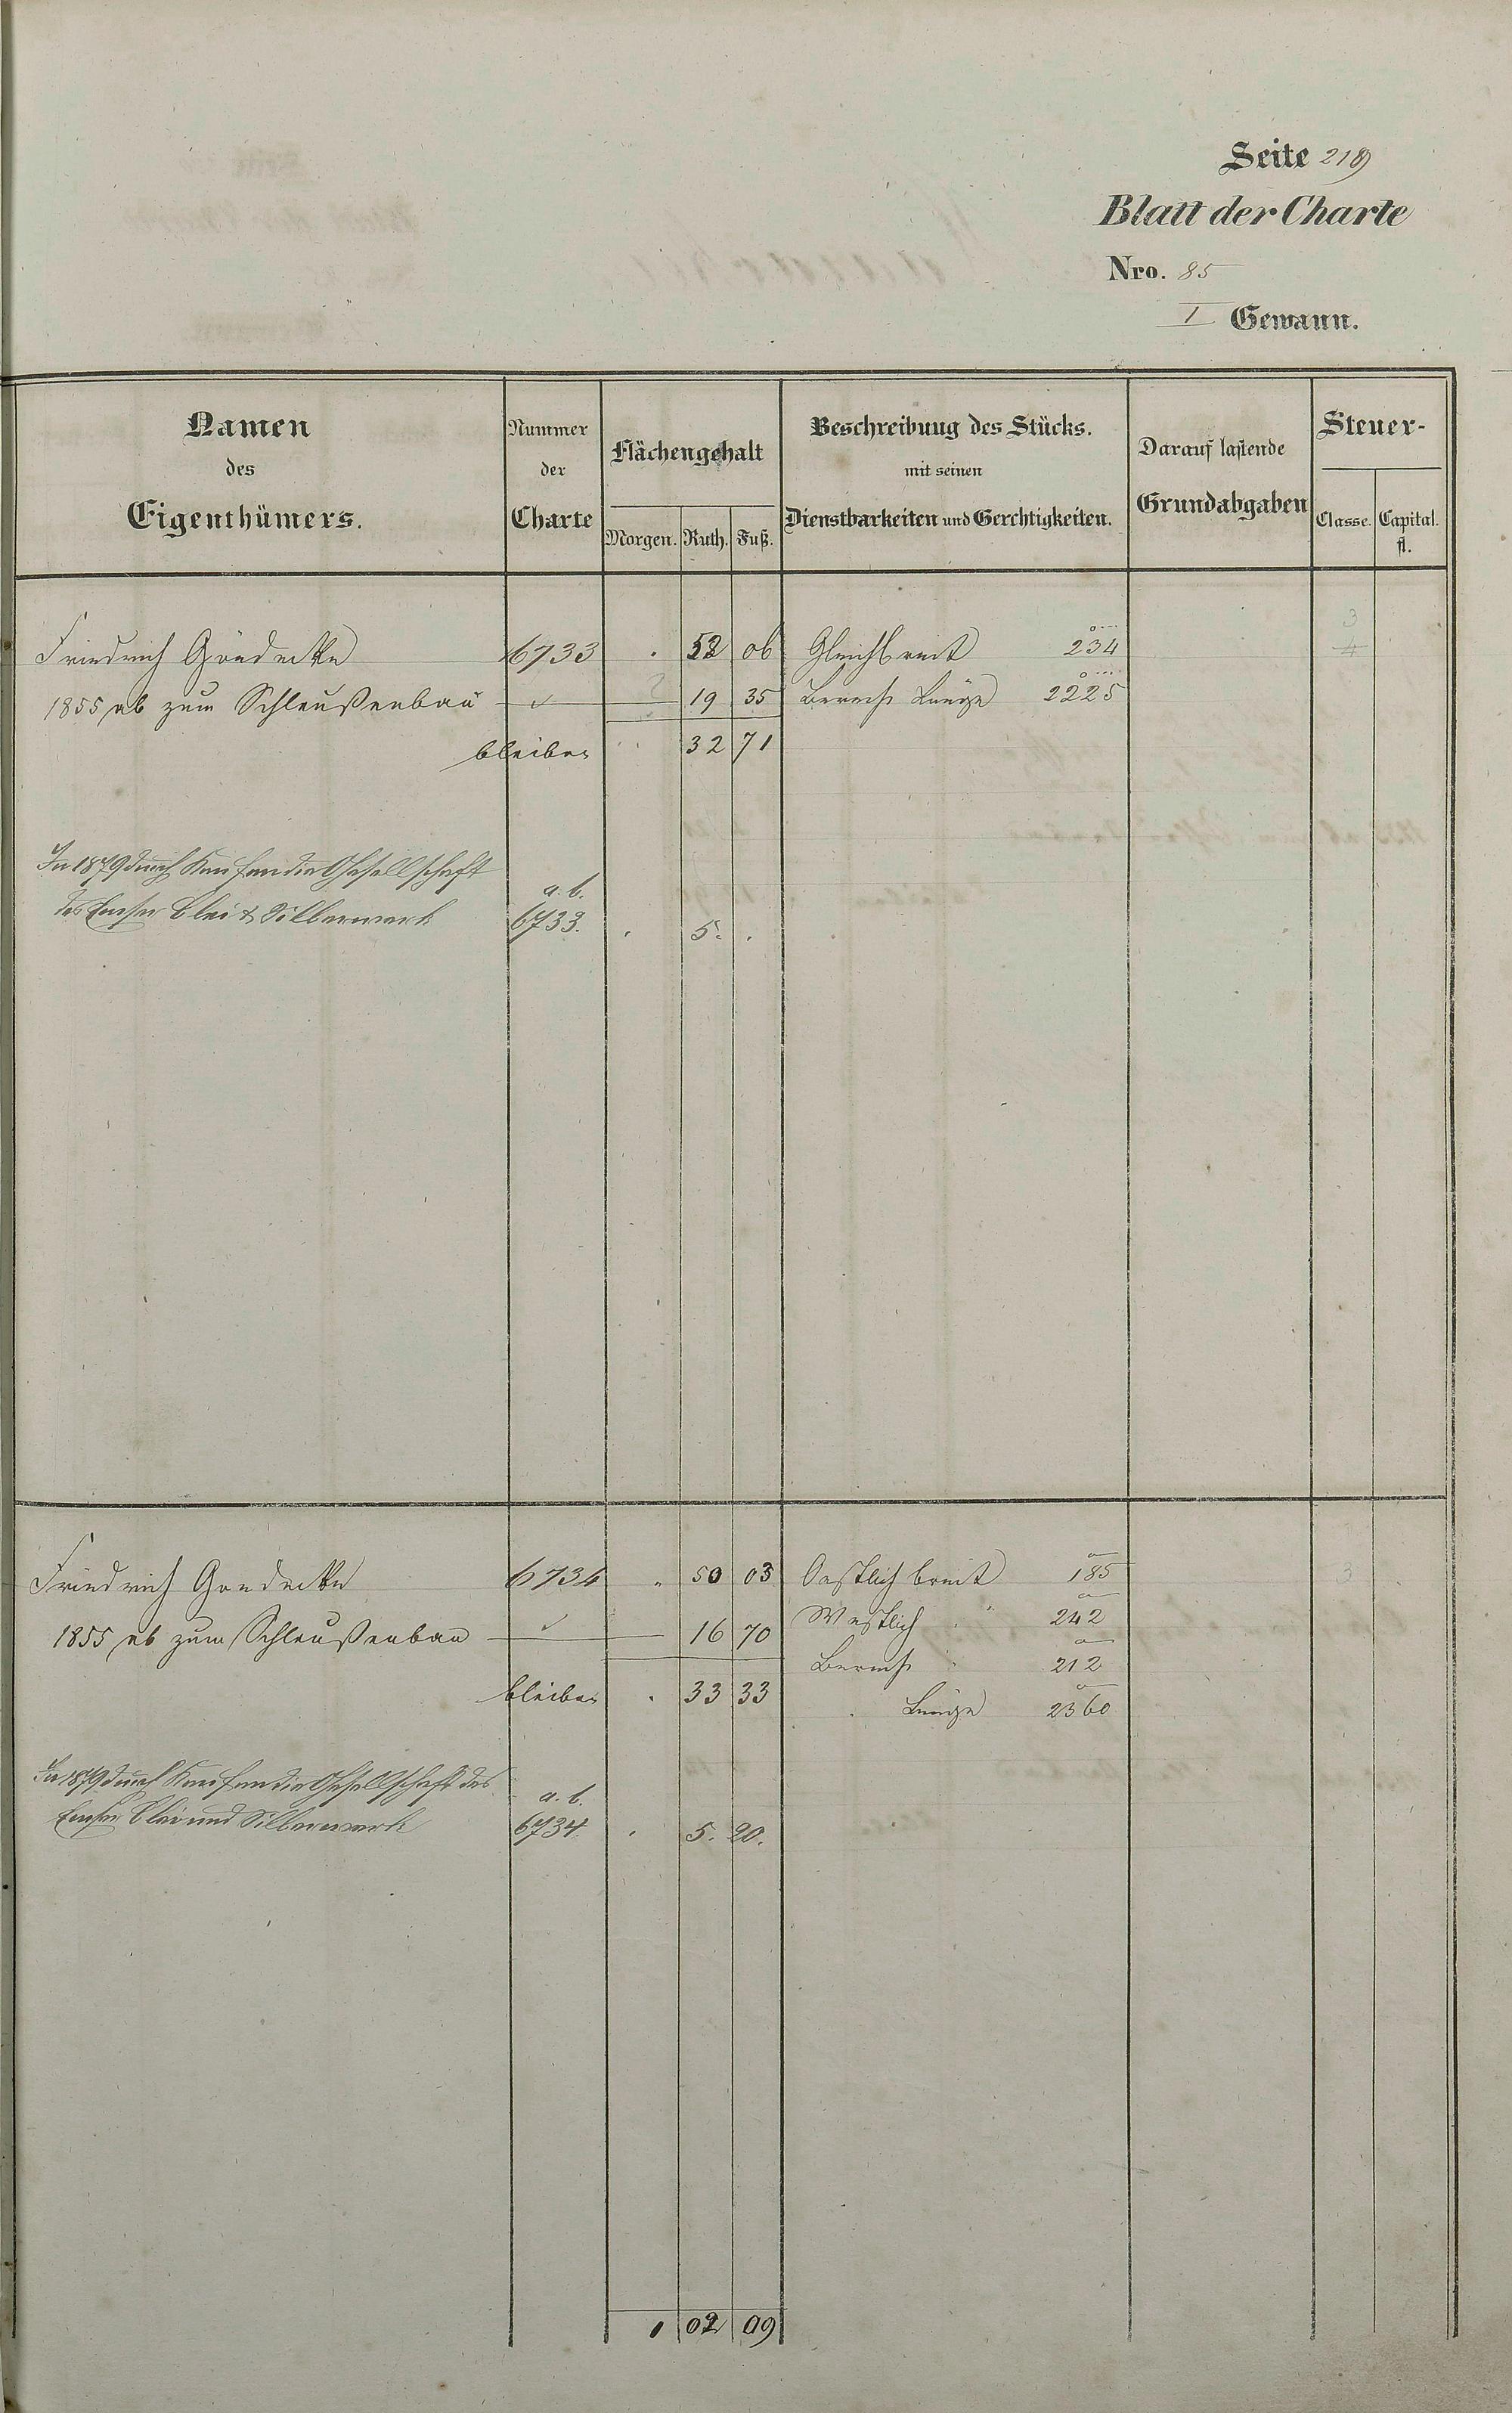 Seite 219
Blatt der Charte
Nro. 85
I Gewann.
Namen des Eigenthümers.
Nummer der Charte
Flächengehalt
Morgen. Ruth. Fuß.
Beschreibung des Stücks. mit seinen Dienstbarkeiten und Gerechtigkeiten.
Darauf lastende Grundabgaben
Steuer-
Classe. Capital. fl.
Friedrich Goedecke 6733 . 52 06 Gleichbreit 234 3 4
1855 ab zum Schleußenbau 19 35 Berech Länge 2225
bleiben 32 71
In 1879 durch Kauf an die Gesellschaft
a. b.
des Emser Blei & Silberwerk 6733. . 5. .
Friedrich Goedecke 6734 " 50 03 Oestlich breit 185 3
1855 ab zum Schleußenbau 16 70 Westlich " 242
Berech " 212
bleiben . 33 33 " Länge 2360
In 1879 durch Kauf an die Gesellschaft des
a. b.
Emser Blei und Silberwerk 6734. . 5. 20.
1 02 09